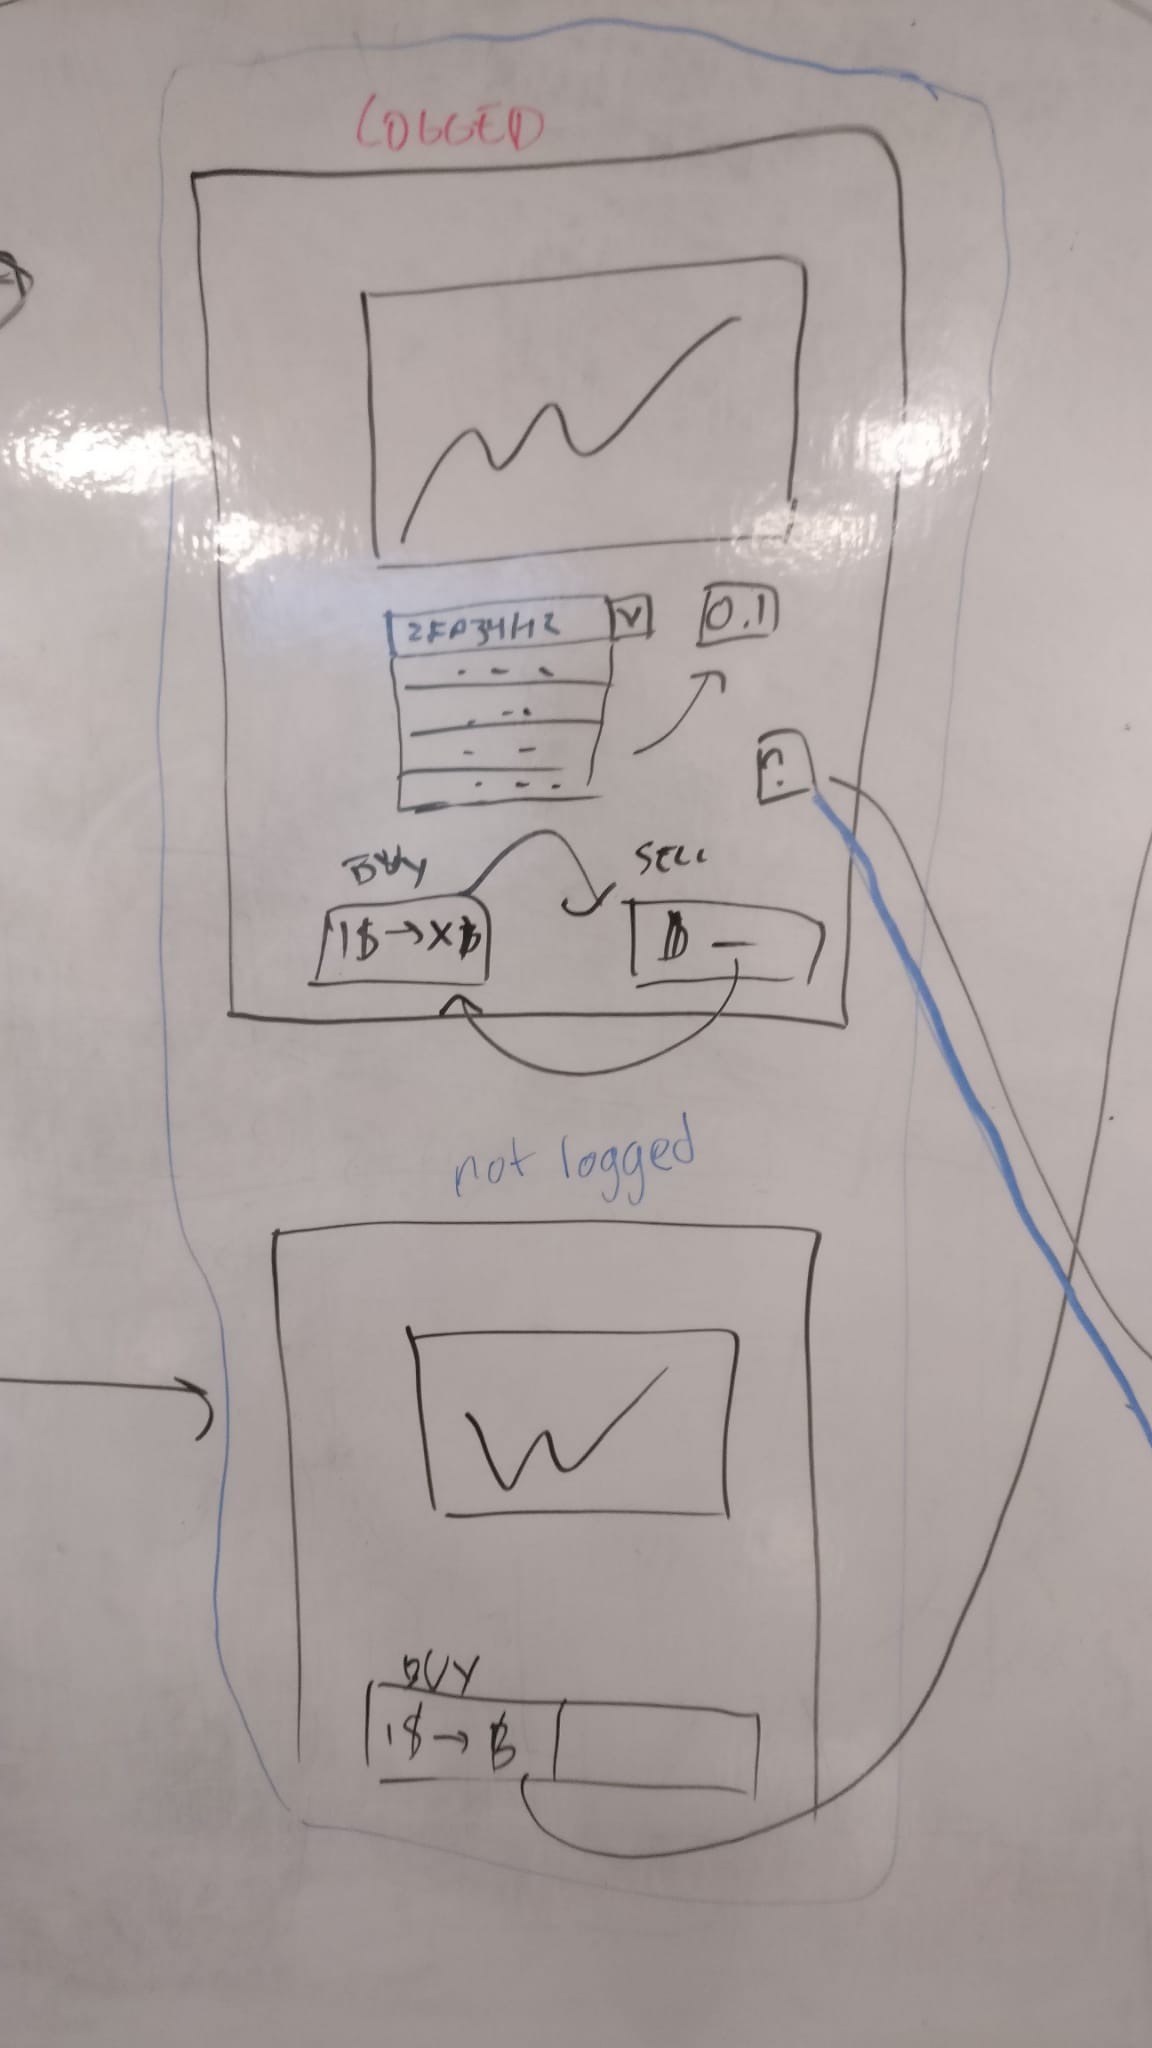 LOGGED
V
0.1
?
BUY
SELL
1$→X₿
₿ —
not logged
BUY
1$→ ₿